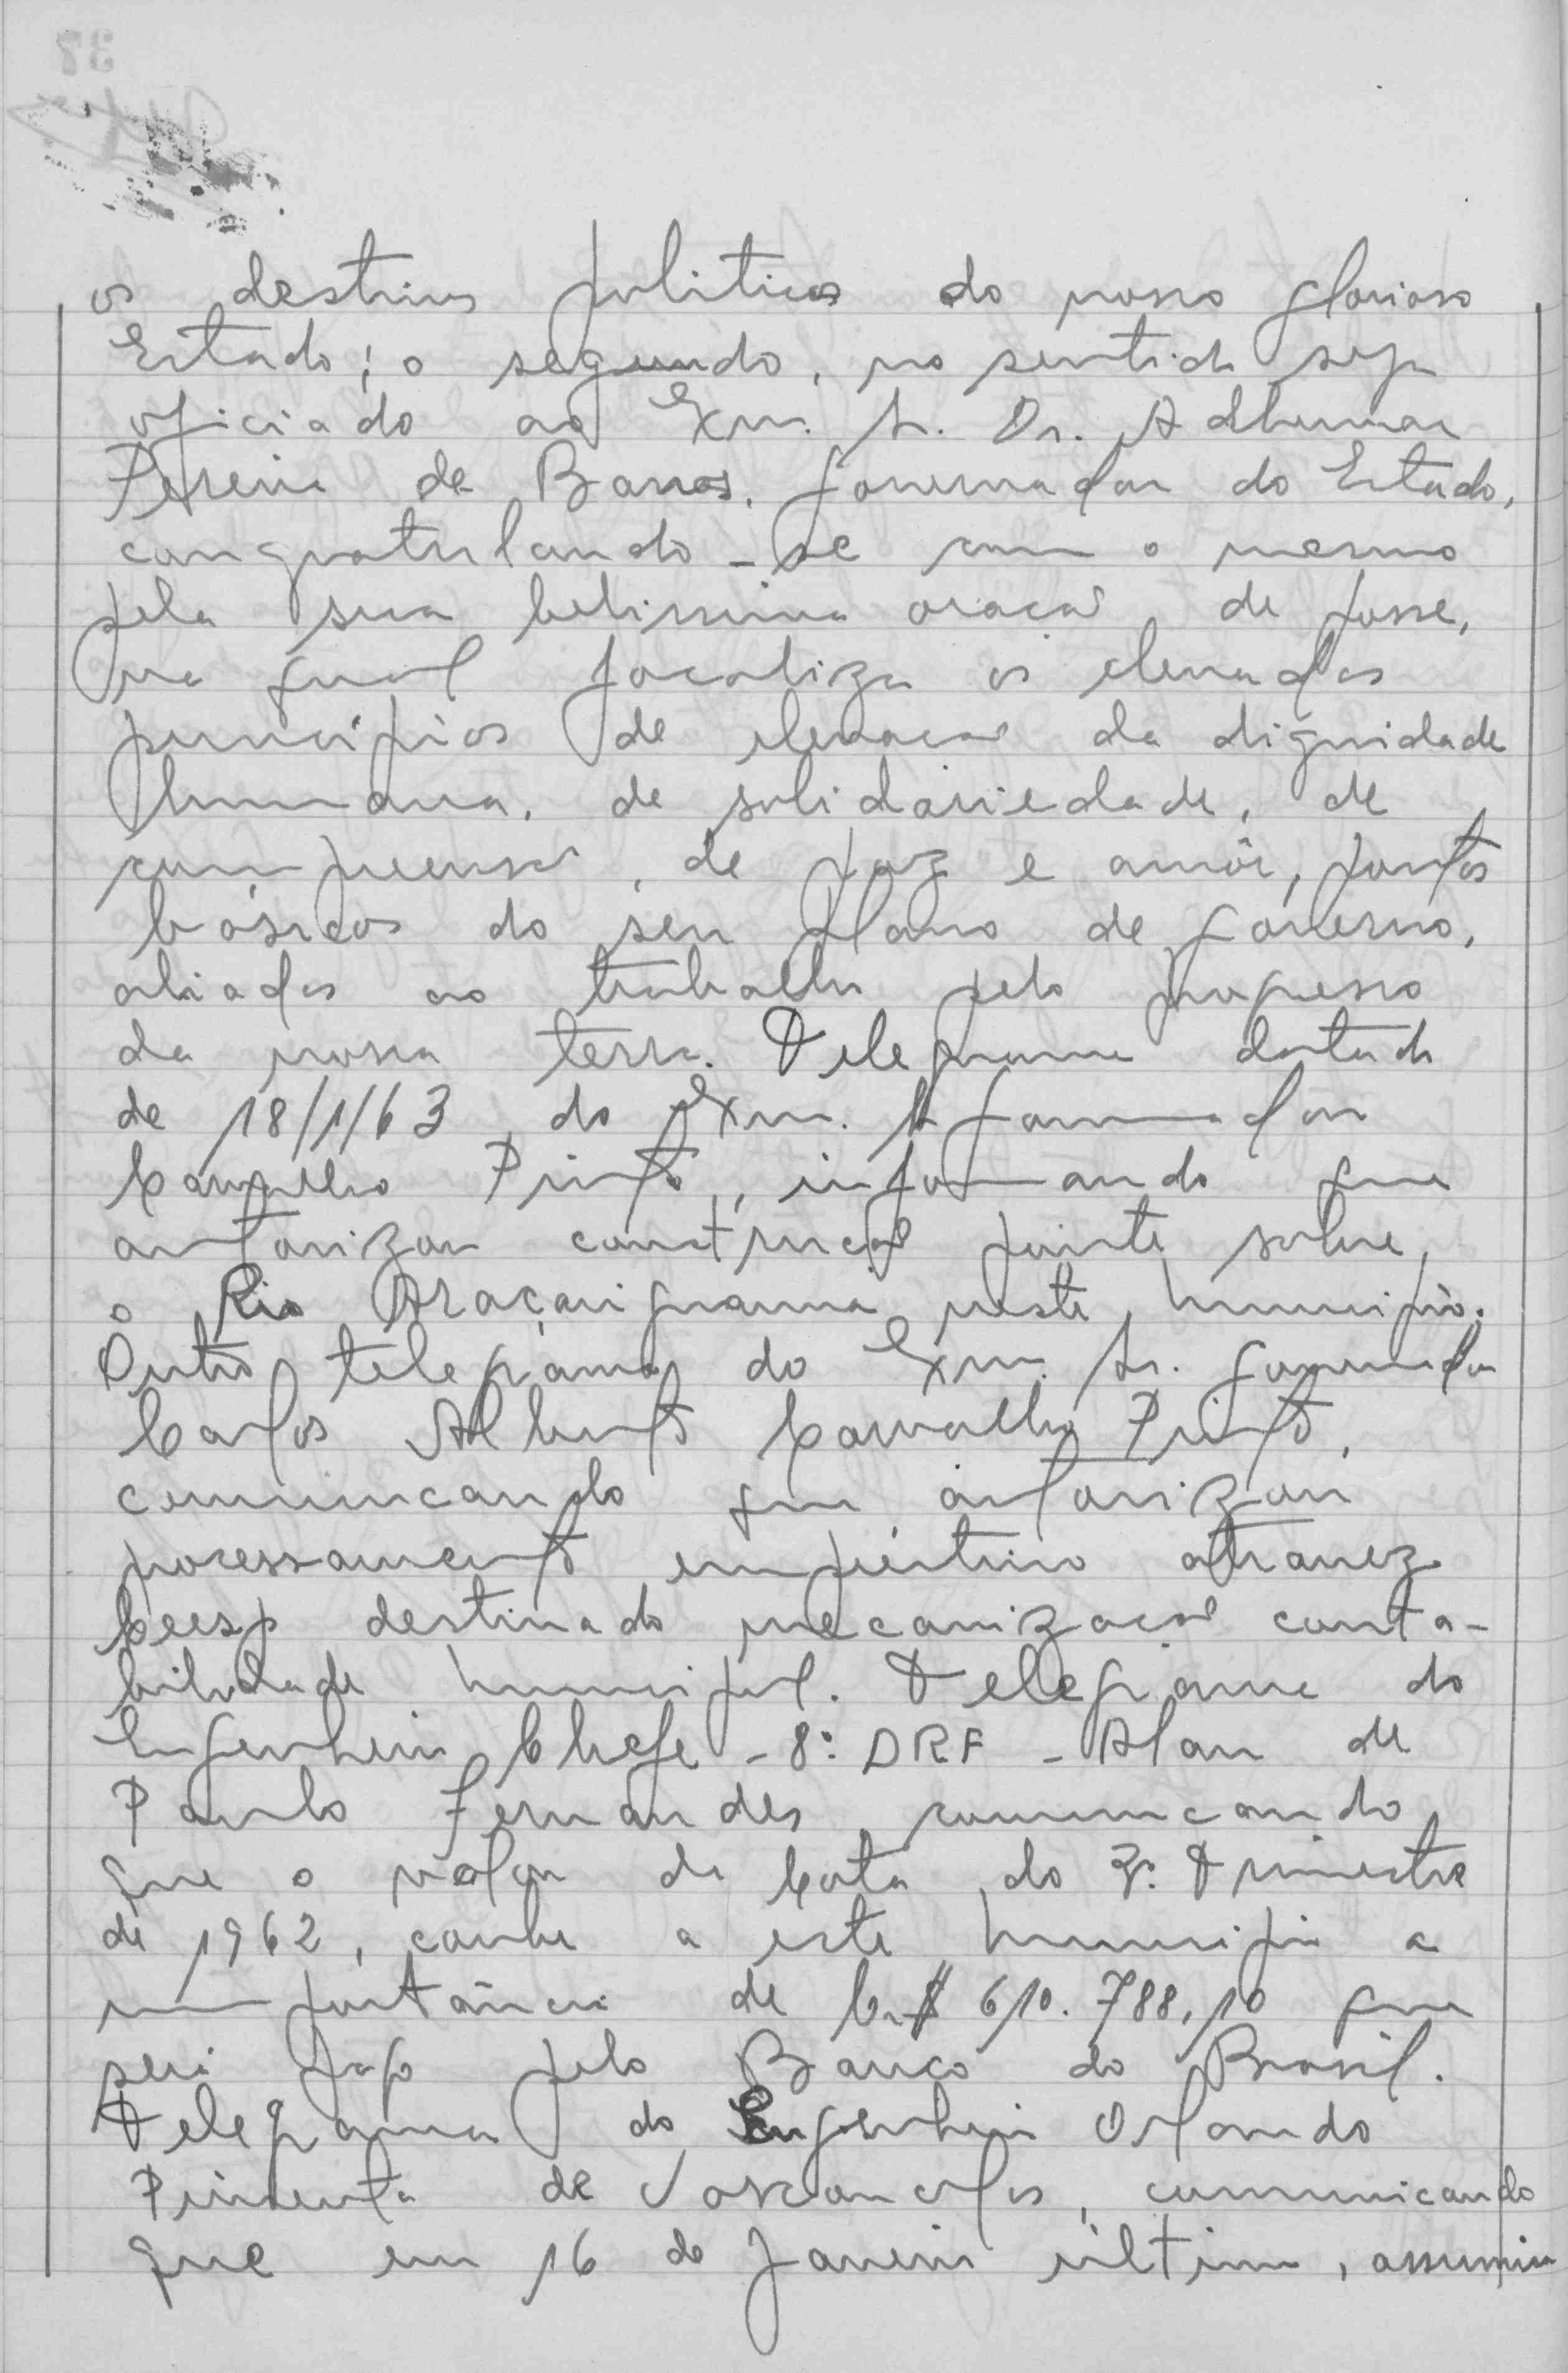 os destinos politicos do nosso glorioso
Estado; o segundo, no sentido seja
oficiado ao Exmo. Sr. Dr. Adhemar
Pereira de Barros, Governador do Estado,
congratulando-se com o mesmo
pela sua belissima oração de posse,
na qual focaliza os elevados
principios de elevação da dignidade
humana, de solidariedade, de
compreensão, de paz e amôr, pontos
básicos do seu plano de governo,
aliados ao trabalho pelo progresso
da nossa terra. Telegrama datado
de 18/1/63 do Exmo. Sr. Governador
Carvalho Pinto, informando que
autorizou construção ponte sobre
o Rio Araçariguama neste municipio.
Outro telegrama do Exmo. Sr. Governador
Carlos Alberto Carvalho Pinto,
comunicando que autorizou
processamento empréstimo atravez
Ceesp destinado mecanização conta-
bilidade municipal. Telegrama do
Engenheiro Chefe - 8º DRF - Alan de
Paulo Fernandes comunicando
que o valor da Cota do 3º Trimestre
de 1962, coube a este municipio a
importância de Cr$ 610.788,10 que
será pago pelo Banco do Brasil.
Telegrama do Engenheiro Orlando
Pimenta de Vasconcelos, comunicando
que em 16 de Janeiro último, assumiu